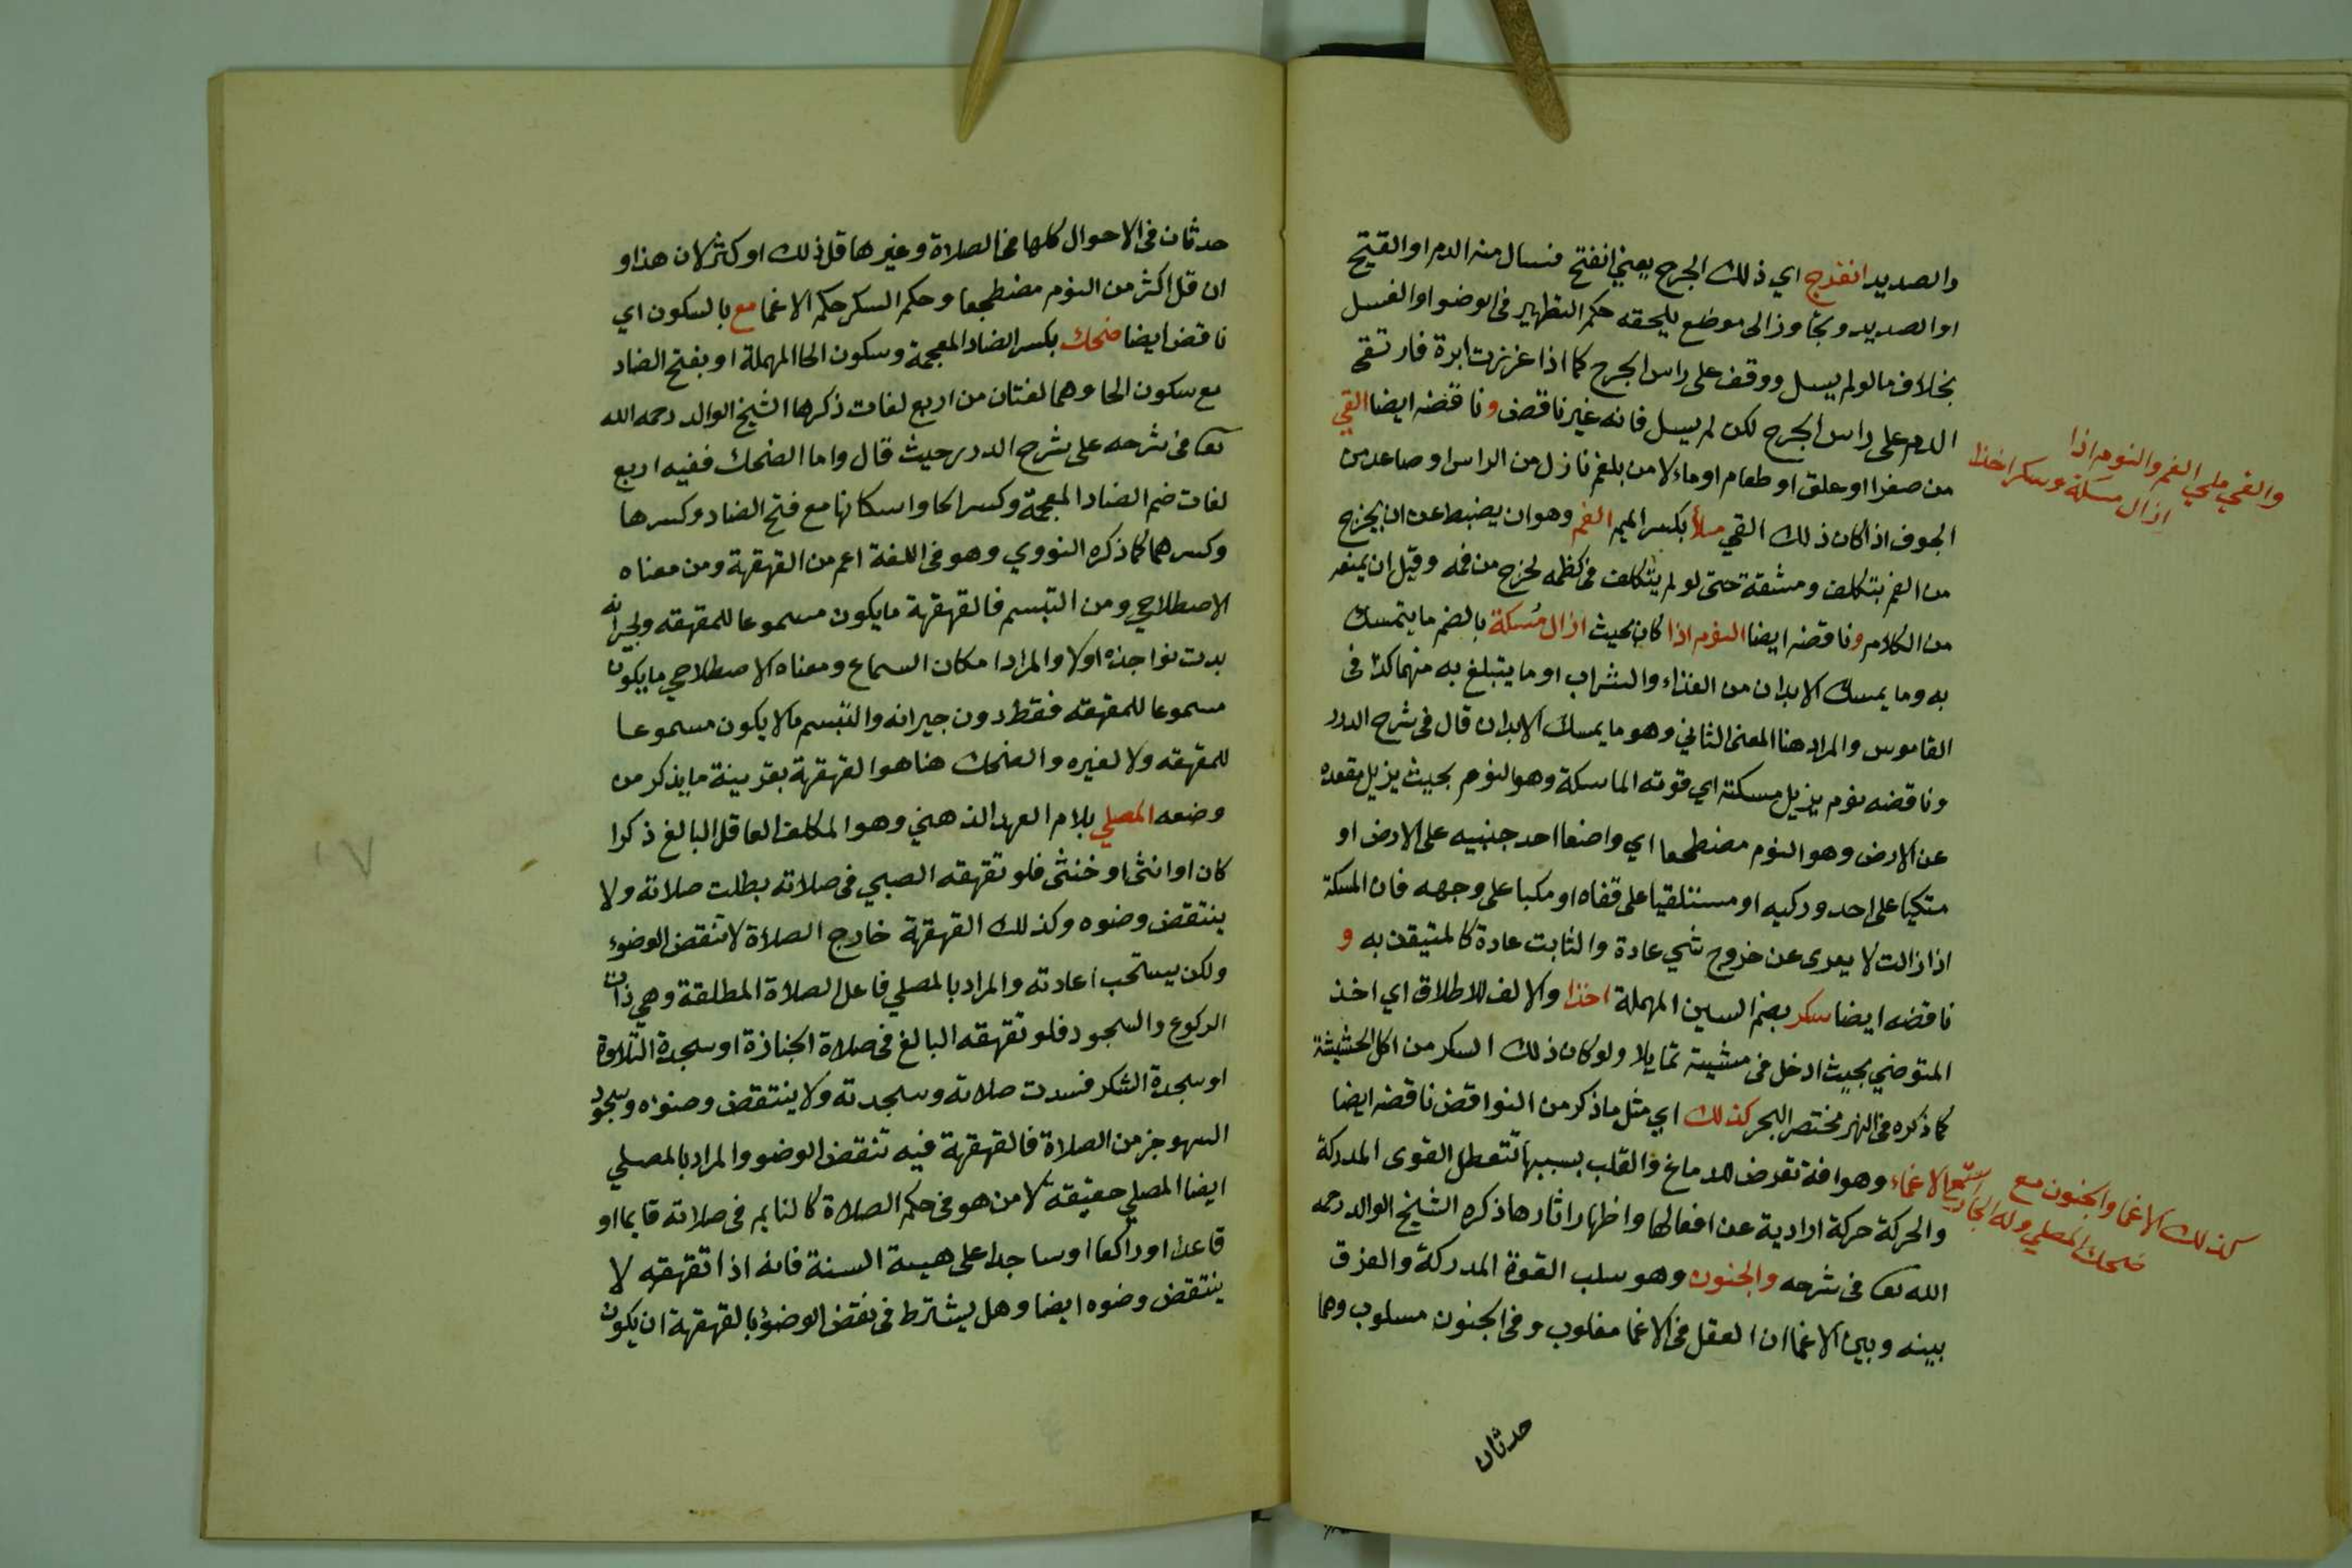 والصديد انفرج اي ذلك الجرح يعني انفتح فسال منه الدم او القيح
او الصديد وتجاوز الى موضع يلحقه حكم التطهير في الوضو او الغسل
بخلاف ما لو لم يسل ووقف على راس الجرح كما اذا غرزت ابرة فارتقى
الدم على راس الجرح لكن لم يسل فانه غير ناقض وناقضه ايضا القي
من صفرا او علق او طعام او ماء لا من بلغم نازل من الراس او صاعد من
الجوف اذا كان ذلك القي ملأ بكسر الميم الفم وهو ان يضبط عن ان يخرج
من الفم بتكلف ومشقة حتى لو لم يتكلف في كظمه لخرج من فمه وقيل ان يمنعه
من الكلام وناقضه ايضا النوم اذا كان بحيث ازال مسكة بالضم ما يتمسك
به وما يمسك الابدان من الغذاء والشراب او ما يتبلغ به منهما كذا في
القاموس والمراد هنا المعنى الثاني وهو ما يمسك الابدان قال في شرح الدرر
وناقضه نوم يزيل مسكته اي قوته الماسكة وهو النوم بحيث يزيل مقعده
عن الارض وهو النوم مضطجعا اي واضعا احد جنبيه على الارض او
متكيا على احد وركيه او مستلقيا على قفاه او مكبا على وجهه فان المسكة
اذا زالت لا يعرى عن خروج شي عادة والثابت عادة كالمتيقن به و
ناقضه ايضا سكر بضم السين المهملة اخذا والالف للاطلاق اي اخذ
المتوضي بحيث ادخل في مشيته تمايلا ولو كان ذلك السكر من اكل الحشيشة
كما ذكره في النهر مختصر البحر كذلك اي مثل ما ذكر من النواقض ناقضه ايضا
الاغماء وهو افة تعرض للدماغ والقلب بسببها تتعطل القوى المدركة
والحركة حركة ارادية عن افعالها واظهار اثارها ذكره الشيخ الوالد رحمه
الله تعا في شرحه والجنون وهو سلب القوة المدركة والفرق
بينه وبين الاغما ان العقل في الاغما مغلوب وفي الجنون مسلوب وهما
حدثان
والقي ملي الفم والنوم اذا
ازال مسكة وسكر اخذا
كذلك الاغما والجنون مع
ضحك المصلي وله
حدثان في الاحوال كلها في الصلاة وغيرها قل ذلك او كثر لان هذا و
ان قل اكثر من النوم مضطجعا وحكم السكر حكم الاغما مع بالسكون اي
ناقض ايضا ضحك بكسر الضاد المعجمة وسكون الحا المهملة او بفتح الضاد
مع سكون الحا وهما لغتان من اربع لغات ذكرها الشيخ الوالد رحمه الله
تعا في شرحه على شرح الدرر حيث قال واما الضحك ففيه اربع
لغات ضم الضاد المعجمة وكسر الحا واسكانها مع فتح الضاد وكسرها
وكسرهما كما ذكره النووي وهو في اللغة اعم من القهقهة ومن معناه
الاصطلاحي ومن التبسم فالقهقهة ما يكون مسموعا للمقهقه ولجيرانه
بدت نواجذه اولا والمراد امكان السماع ومعناه الاصطلاحي ما يكون
مسموعا للمقهقه فقط دون جيرانه والتبسم ما لا يكون مسموعا
للمقهقه ولا لغيره والضحك هنا هو القهقهة بقرينة ما يذكر من
وضعه المصلي بلام العهد الذهني وهو المكلف العاقل البالغ ذكرا
كان او انثى او خنثى فلو تقهقه الصبي في صلاته بطلت صلاته ولا
ينتقض وضوه وكذلك القهقهة خارج الصلاة لا تنقض الوضوء
ولكن يستحب اعادته والمراد بالمصلي فاعل الصلاة المطلقة وهي ذات
الركوع والسجود فلو تقهقه البالغ في صلاة الجنازة او سجدة التلاوة
او سجدة الشكر فسدت صلاته وسجدته ولا ينتقض وضوءه وسجود
السهو جز من الصلاة فالقهقهة فيه تنقض الوضو والمراد بالمصلي
ايضا المصلي حقيقة لا من هو في حكم الصلاة كالنايم في صلاته قايما او
قاعدا او راكعا او ساجدا على هيية السنة فانه اذا تقهقه لا
ينتقض وضوه ايضا وهل يشترط في نقض الوضوء بالقهقهة ان يكون
١٧